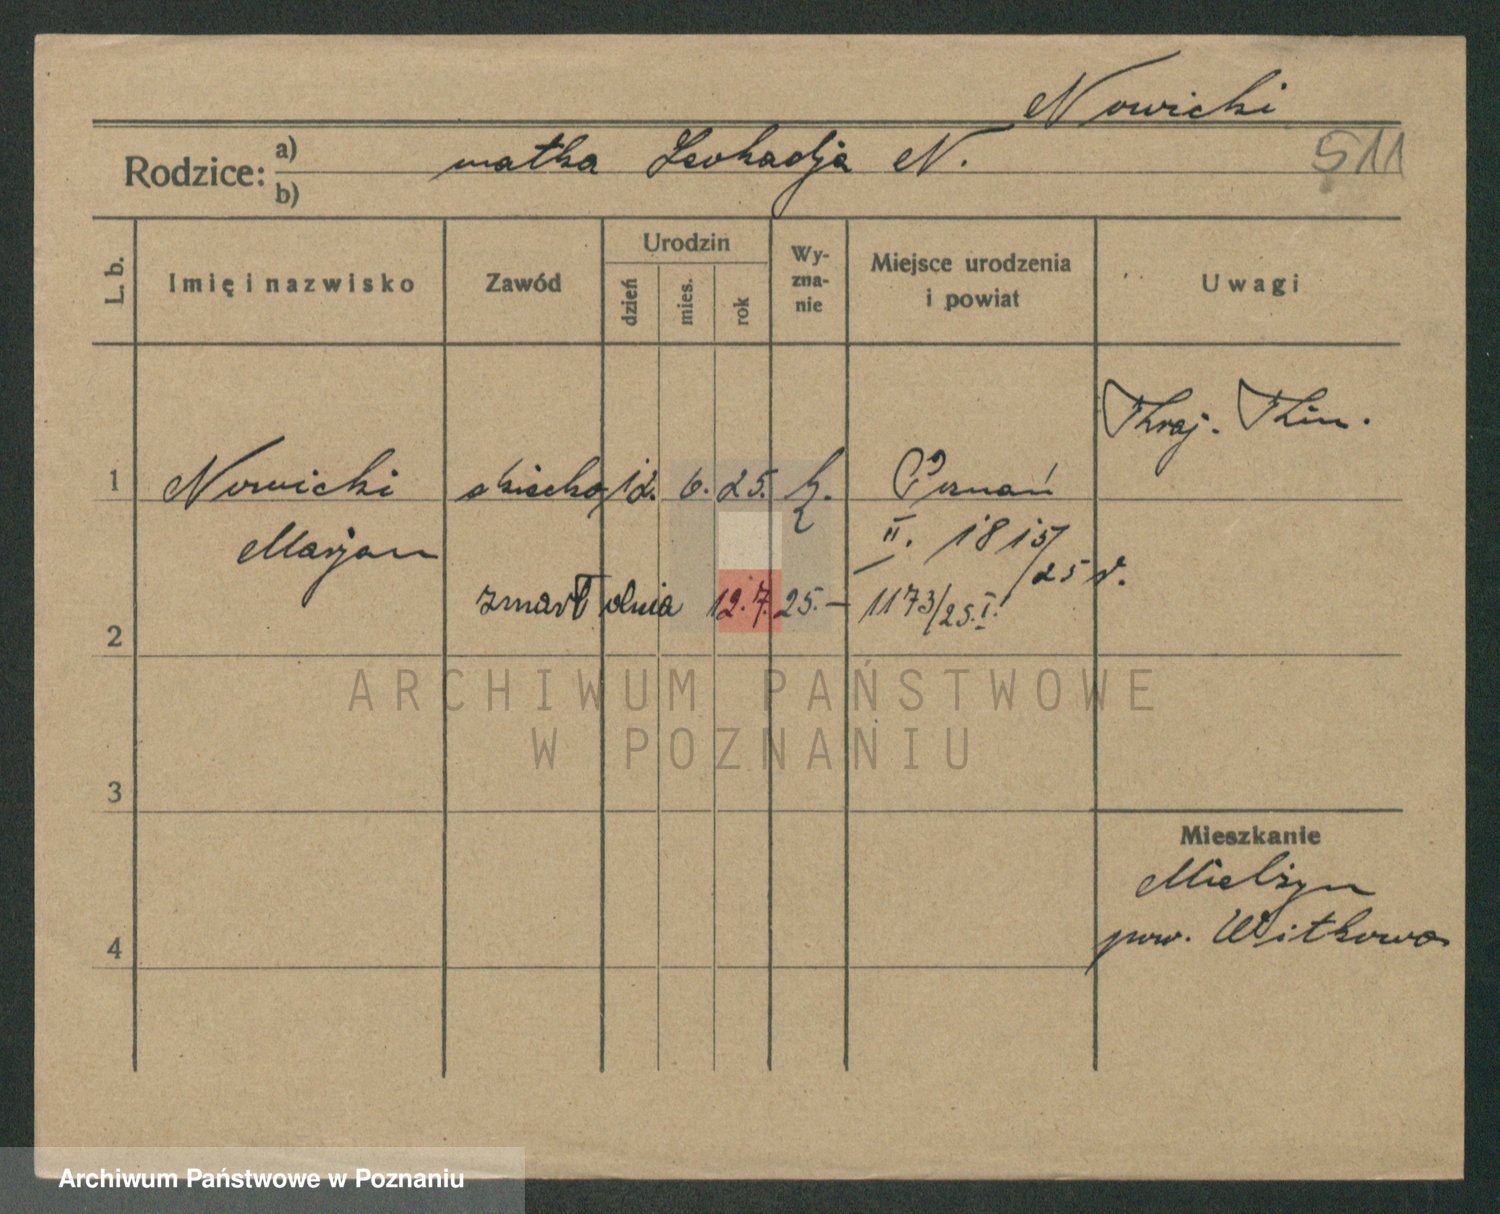 Nowicki
511
Rodzice: a) matka Leokadja N.
b)
L. b.
Imię i nazwisko
Zawód
Urodzin
dzień
mies.
rok
Wy-
zna-
nie
Miejsce urodzenia
i powiat
Uwagi
1
Nowicki
Marjan
dziecko
12. 6. 25.
k.
Poznań
II. 1815/25 r.
zmarł dnia 12.7.25. – 1173/25. I.
2
3
4
Mieszkanie
Mielżyn
pow. Witkowo
ARCHIWUM PAŃSTWOWE
W POZNANIU
Archiwum Państwowe w Poznaniu